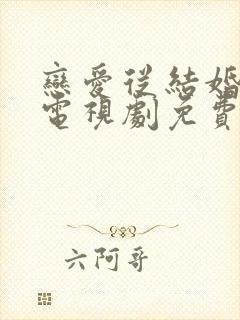 戀愛從結婚
電視劇免費
六阿哥